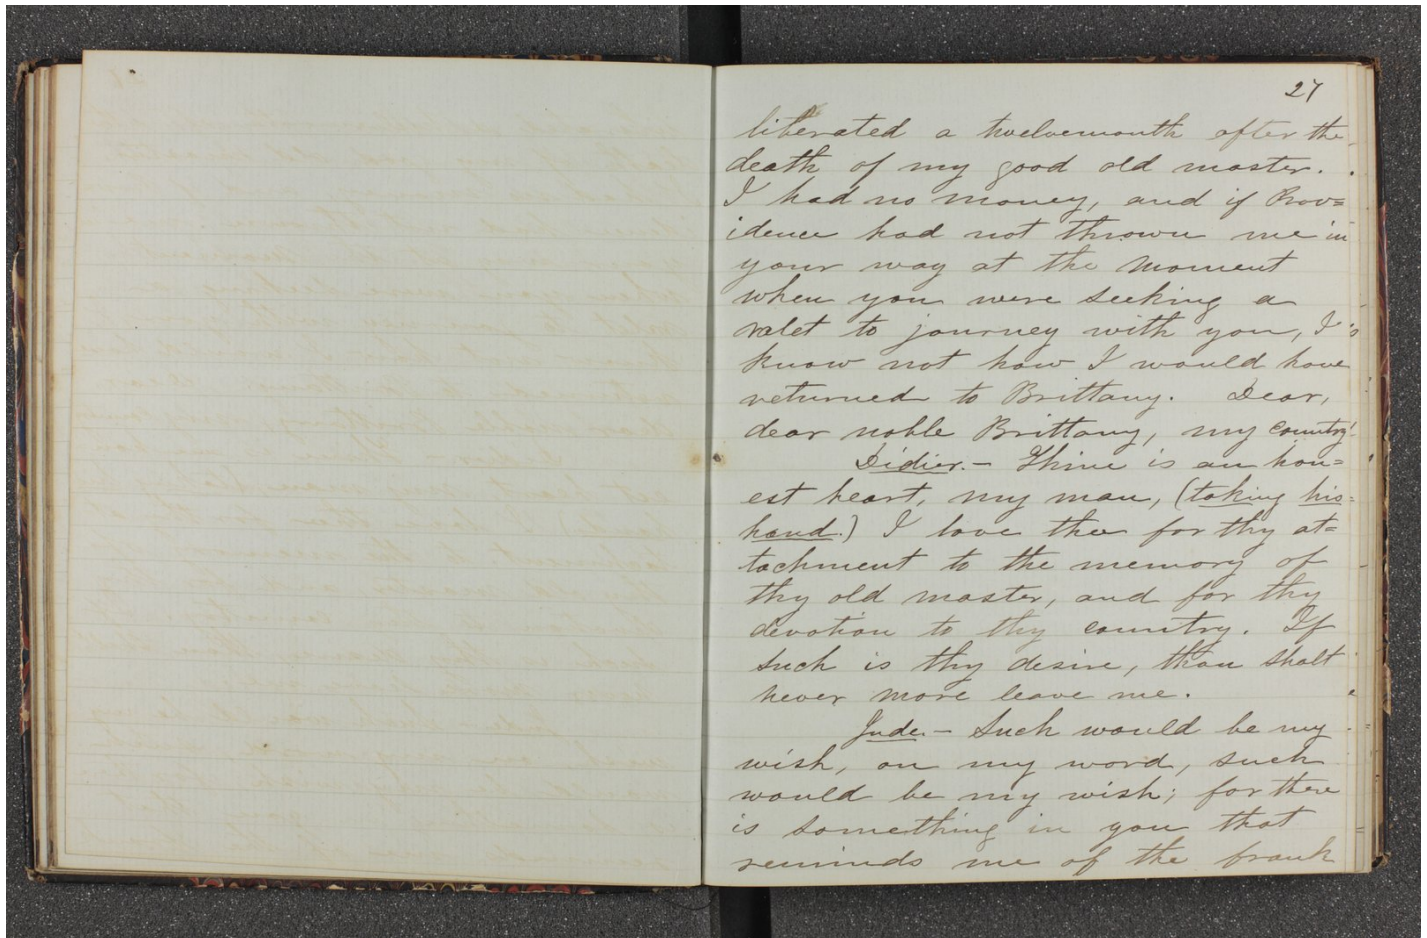 27
liberated a twelvemonth after the
death of my good old master.
I had no money, and if Prov=
idence had not thrown me in
your way at the moment
when you were seeking a
valet to journey with you, I
know not how I would have
returned to Brittany. Dear,
dear noble Brittany, my country!
Didier.- Thine is an hon=
est heart, my man, (taking his
hand.) I love thee for thy at=
tachment to the memory of
thy old master, and for thy
devotion to thy country. If
such is thy desire, thou shalt
never more leave me.
Jude.- Such would be my
wish, on my word, such
would be my wish; for there
is something in you that
reminds me of the frank